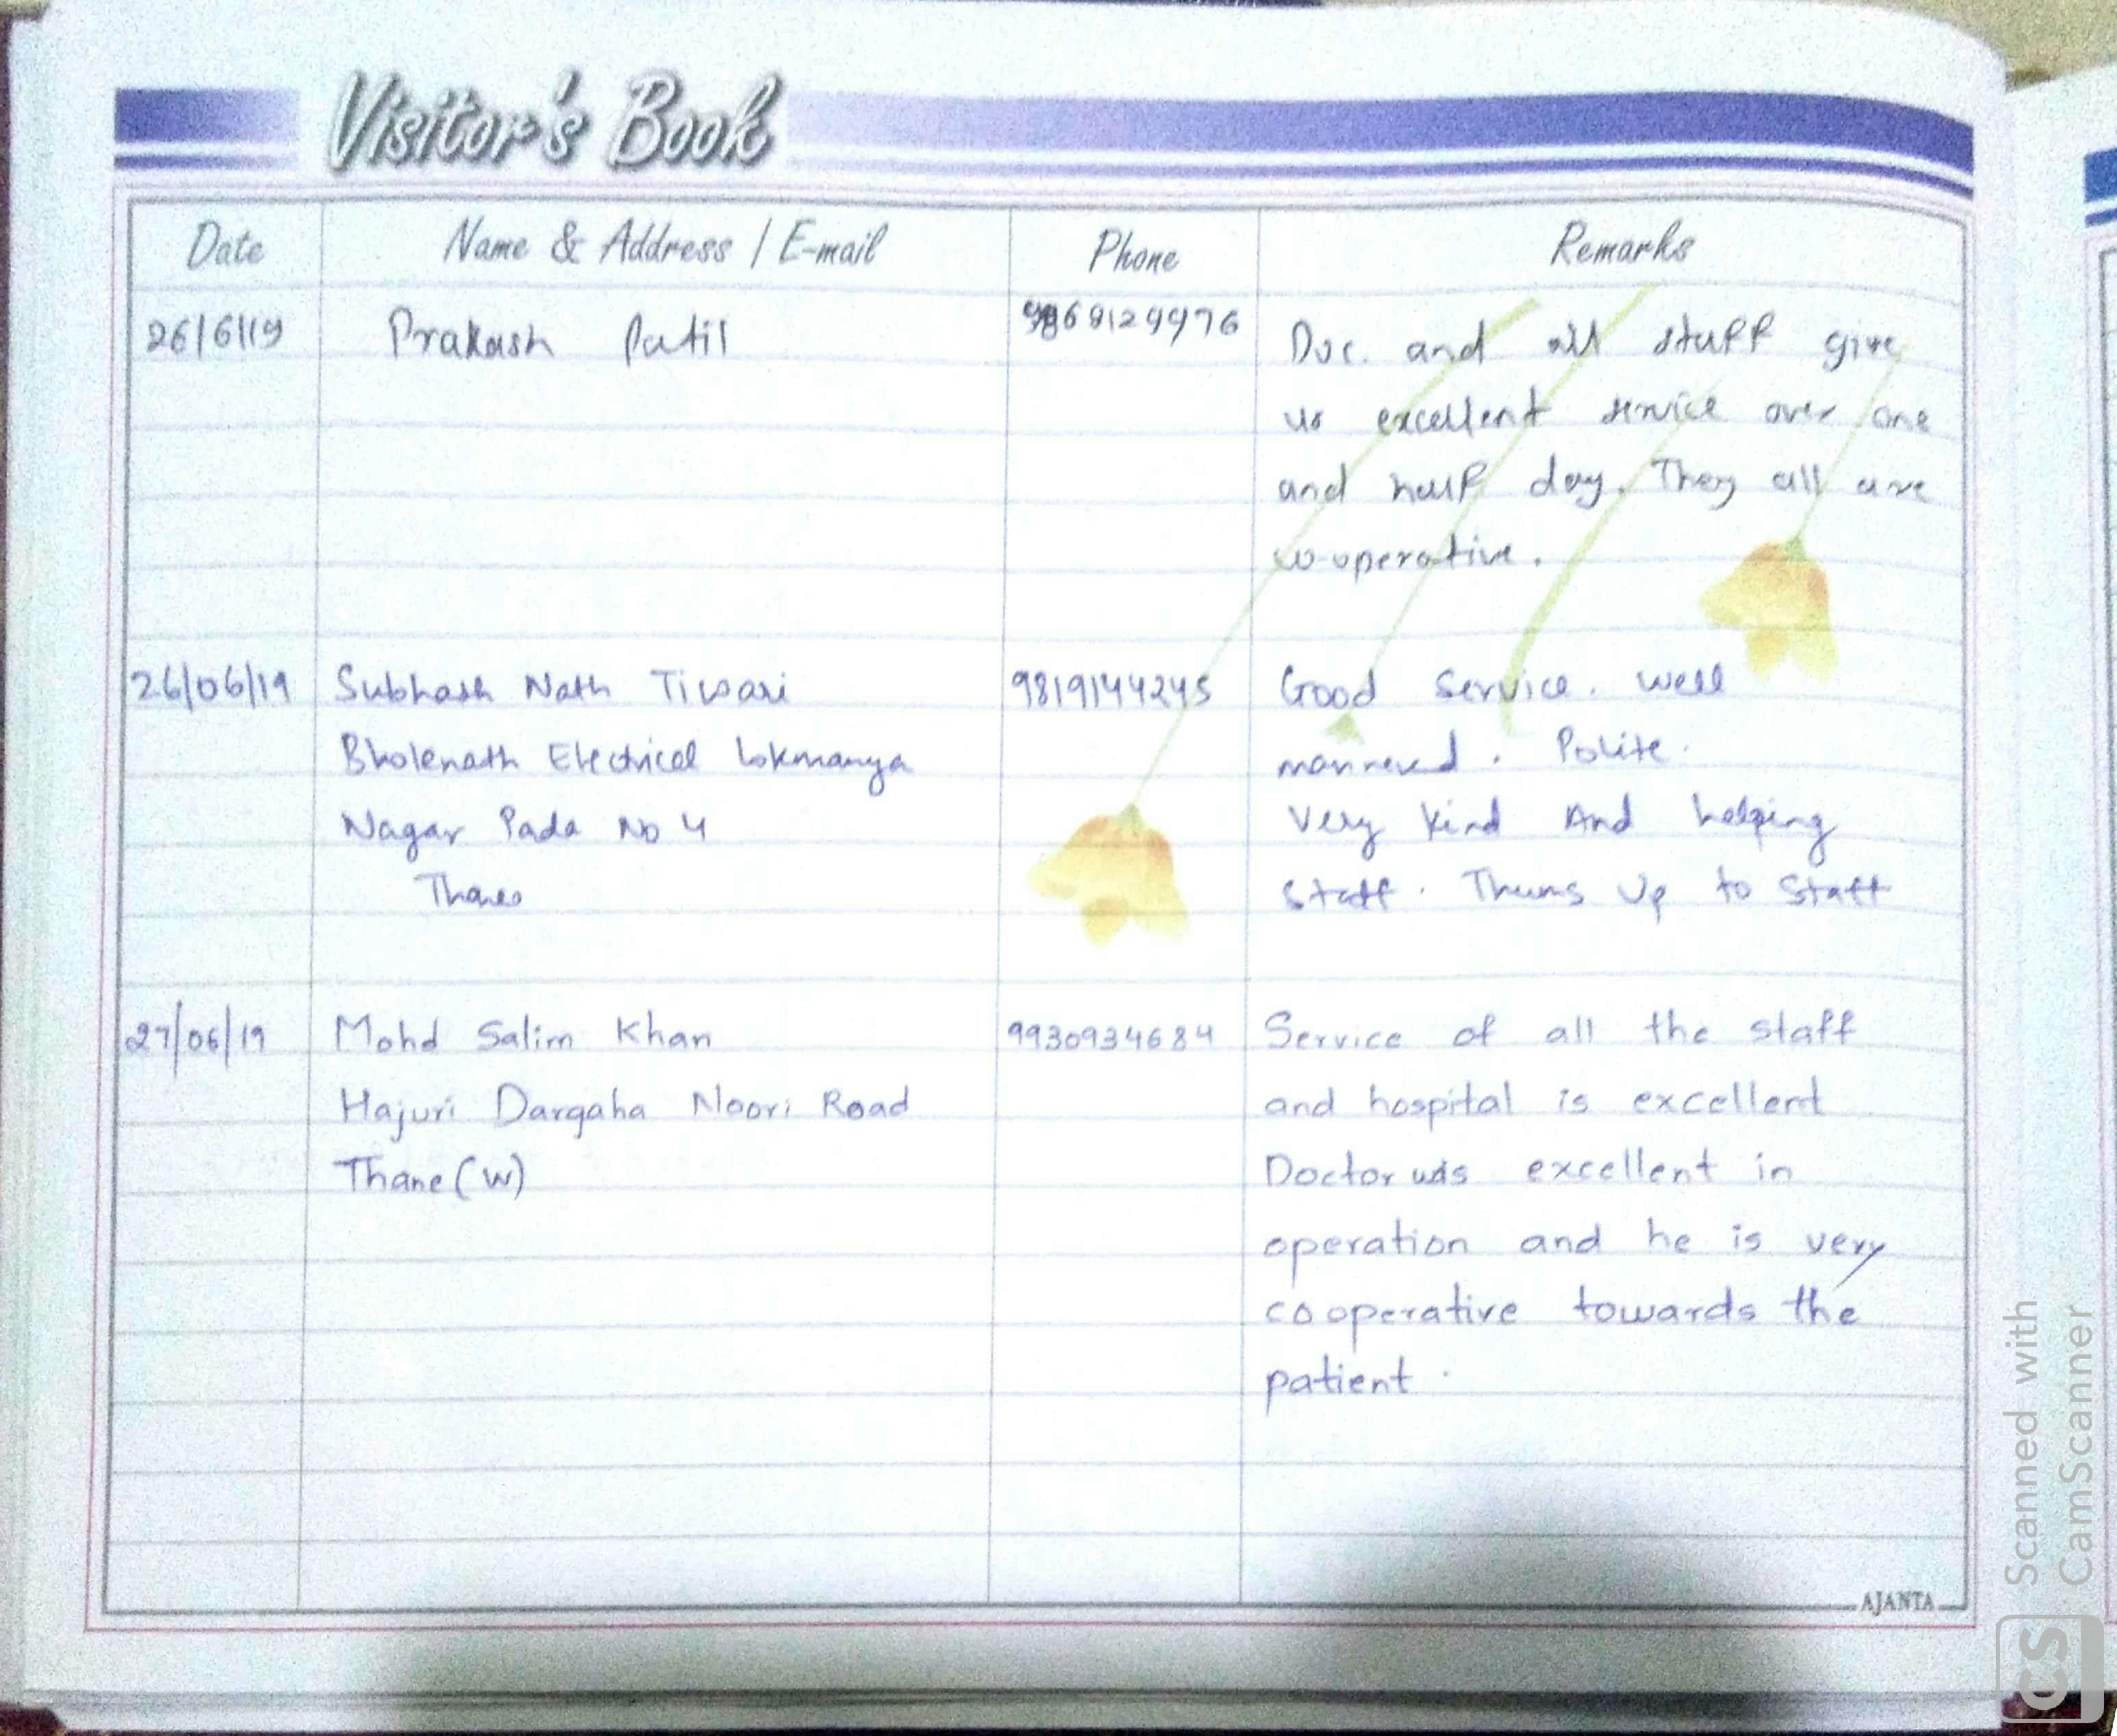 Visitor's Book
Date Name & Address / E-mail Phone Remarks
26/6/19 Prakash Patil Doc. and all stuff give
us excellent service over one
and half day. They all are
co-operative.
26/06/19 Subhash Nath Tiwari 9819144245 Good Service. Well
Bholenath Electrical Lokmanya mannered. Polite.
Nagar Pada No 4 Very Kind And helping
Thane Staff. Thums Up to Staff
27/06/19 Mohd Salim Khan 9930934684 Service of all the staff
Hajuri Dargaha Noori Road and hospital is excellent
Thane (W) Doctor was excellent in
operation and he is very
cooperative towards the
patient.
AJANTA
Scanned with
CamScanner
CS